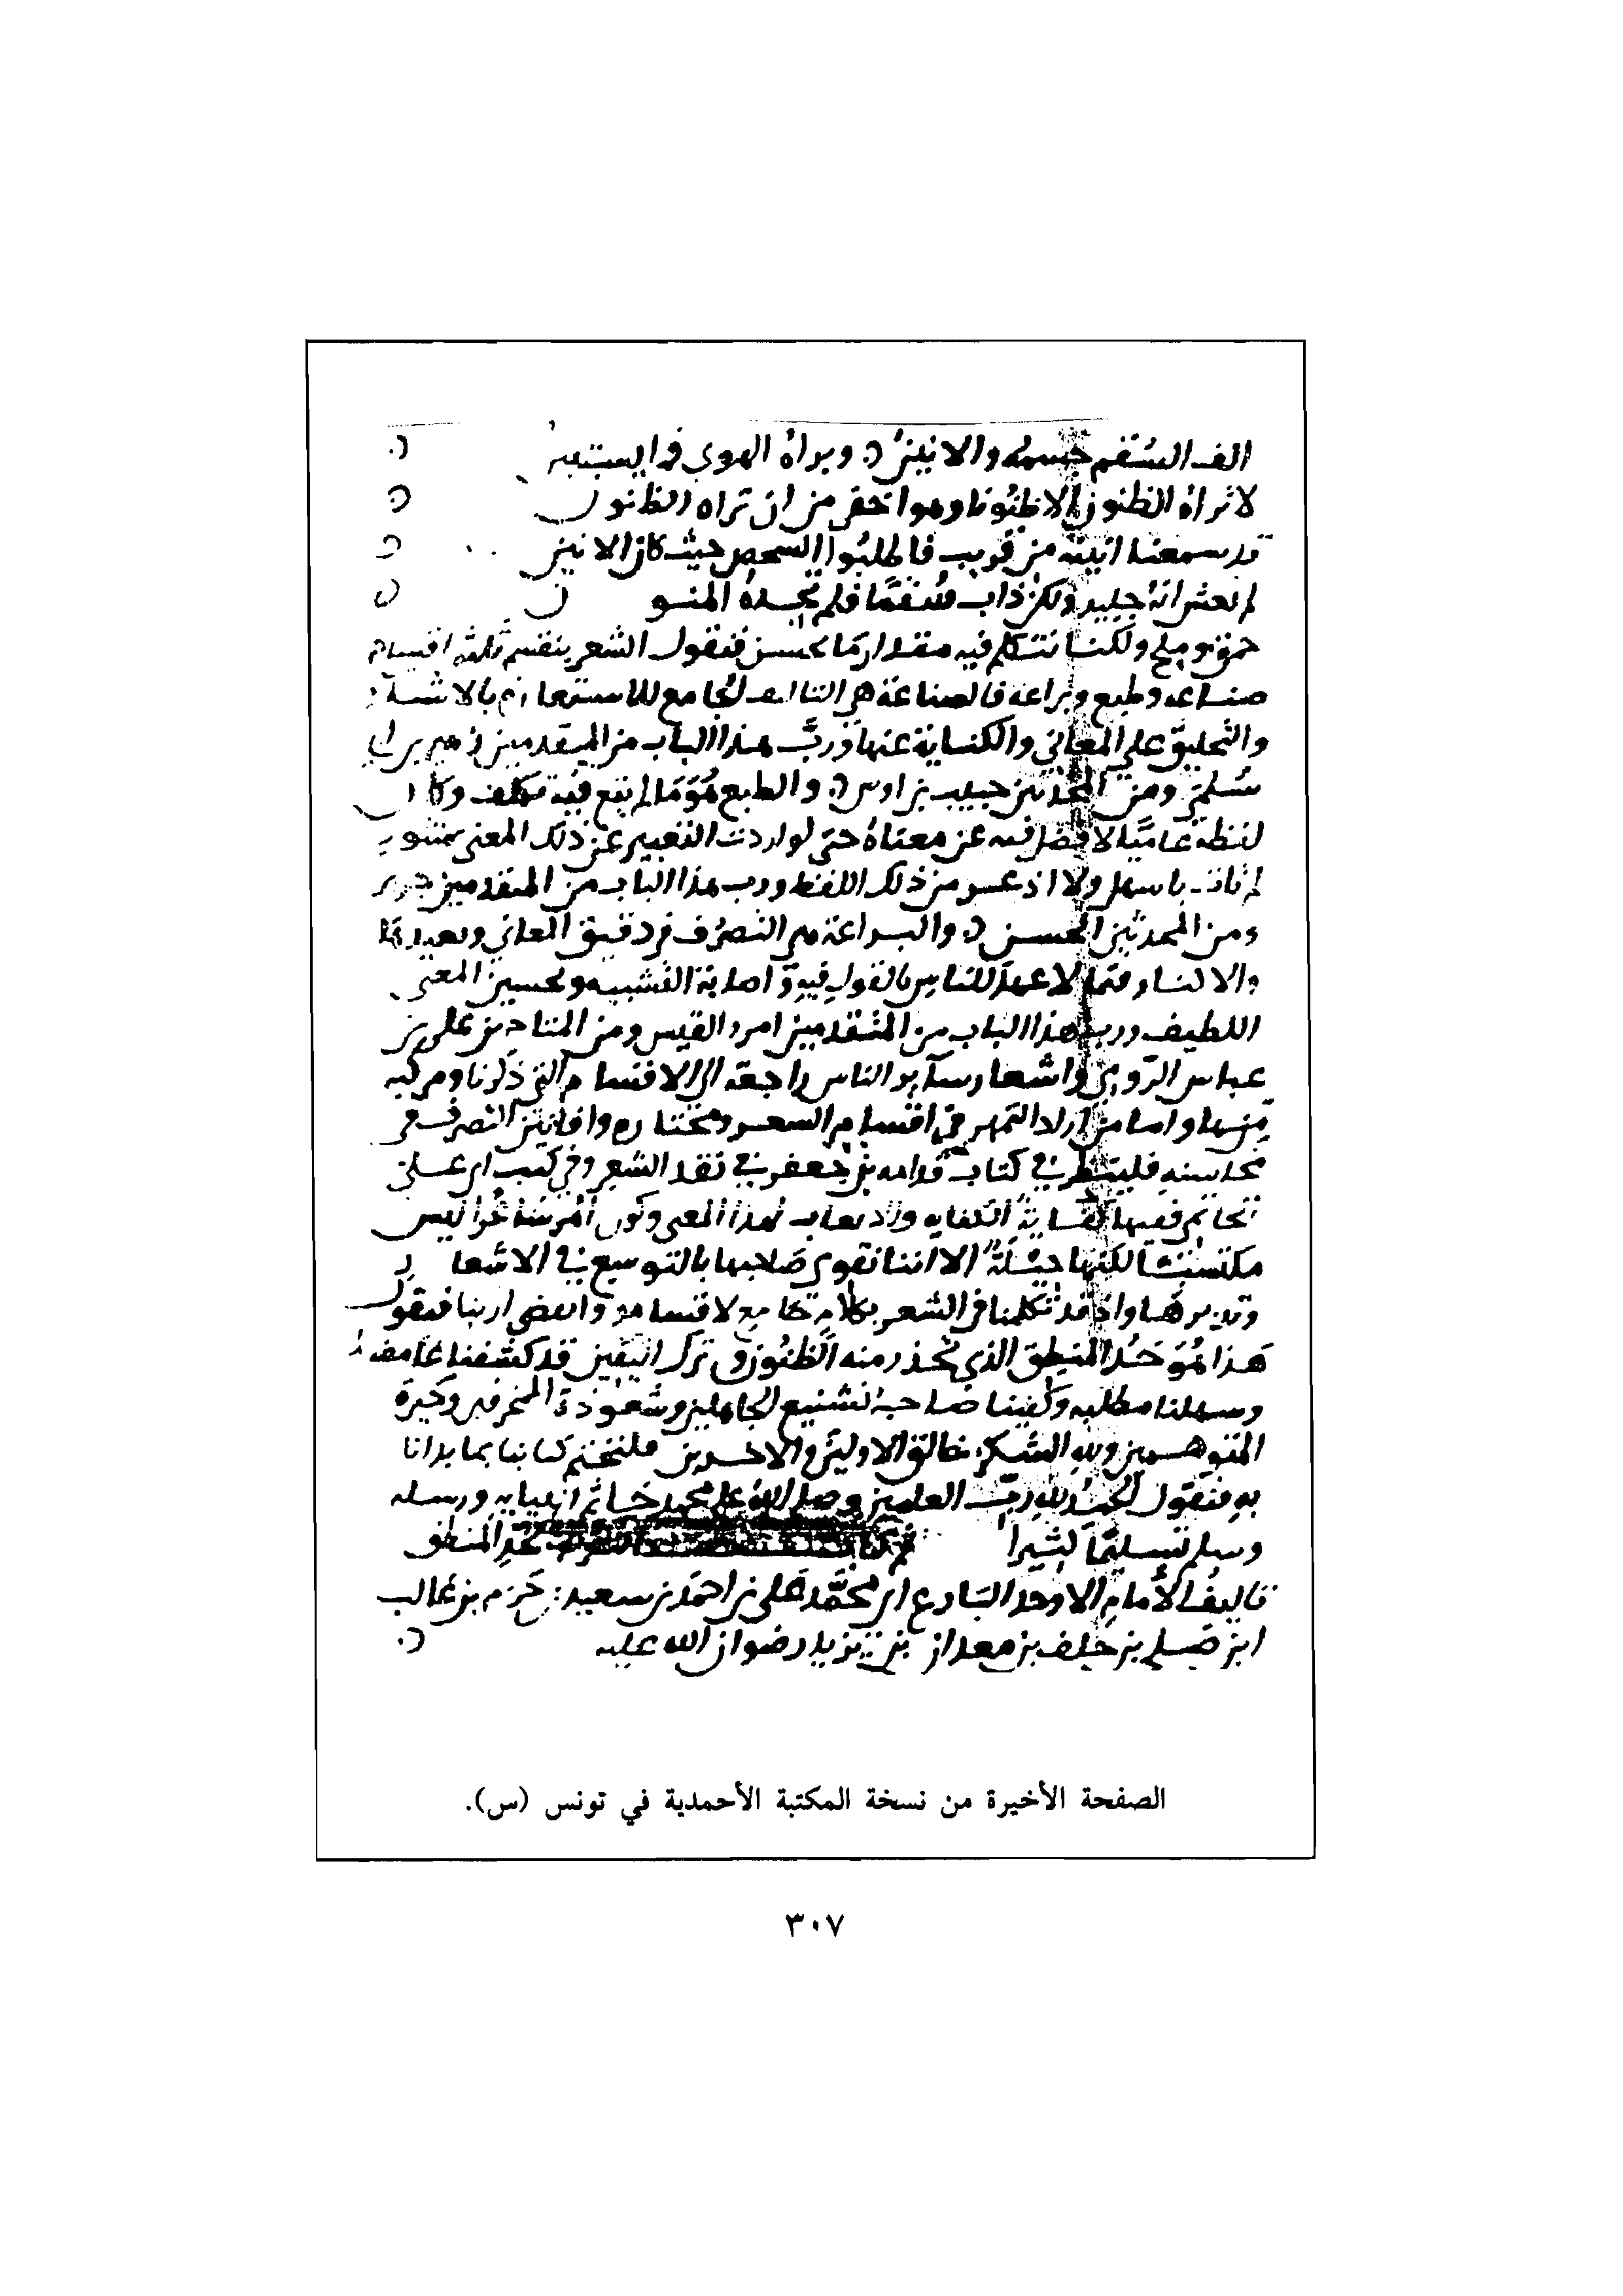 الف السقم جسمه والانين وبراه الهوى فما يستبين
لا تراه الظنون الا ظنونا وهو اخفى من ان تراه الظنون
قد سمعنا انينه من قريب فاطلبوا الشخص حيث كان الانين
لم يعش انه جليد ولكن ذاب سقما فلم تجده المنون
ولكنا نتكلم فيه مقدار ما يحسن فنقول الشعر ينقسم ثلثة اقسام
صناعه وطبع وبراعه فالصناعة هي التاليف الجامع للاستعارة بالاشيا
والتحليق على المعاني والكناية عنها ورب هذا الباب من المتقدمين زهير بن ابي
سلمى ومن المحدثين حبيب بن اوس والطبع هو ما لم يقع فيه تكلف وكان
لفظه عاميا لا فضل فيه عن معناه حتى لو اردت التعبير عن ذلك المعنى بمنثور
لم تات باسهل ولا اوجز من ذلك اللفظ ورب هذا الباب من المتقدمين جرير
ومن المحدثين الحسن والبراعة هي التصرف في دقيق المعاني وبعيدها
والاكثار فيما لا عهد للناس بالقول فيه واصابة التشبيه وتحسين المعنى
اللطيف ورب هذا الباب من المتقدمين امرء القيس ومن المتاخرين علي بن
عباس الرومي واشعار سآير الناس راجعة الى الاقسام التي ذكرنا ومركبه
منها واما من اراد التمهر في اقسام الشعر ومختاره وافانين التصرف في
محاسنه فلينظر في كتاب قدامه بن جعفر في نقد الشعر وفي كتب ابي علي
الحاتمي ففيها كفاية الكفايه والايعاب لهذا المعنى وكون المرء شاعرا ليس
مكتسبا لكنها جبلة الا اننا نقوي صاحبها بالتوسع في الاشعار
وتدبرها واذ قد تكلمنا في الشعر بكلام جامع لاقسامه وانقضى اربنا فنقول
هذا هو حد المنطق الذي تحذر منه الظنون وترك اليقين قد كشفنا غامضه
وسهلنا مطلبه وكفينا صاحبه تشنيع الجاهلين وشعوذة الممخرقين وحيرة
المتوهمين ولله الشكر خالق الاولين والاخرين فلنختم كتابنا بما بدانا
به فنقول الحمد لله رب العلمين وصلى الله على محمد خاتم انبيايه ورسله
وسلم تسليما كثيرا تم حد المنطق
تاليف الأمام الاوحد البارع ابي محمد علي بن احمد بن سعيد بن حزم بن غالب
ابن صلح بن خلف بن معدان بن يزيد رضوان الله عليه
الصفحة الأخيرة من نسخة المكتبة الأحمدية في تونس (س).
٣٠٧